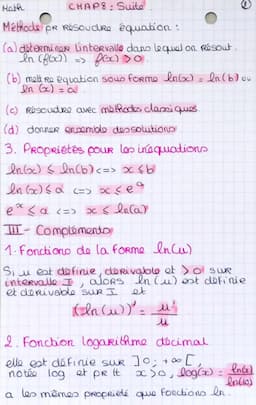 Math CHAP8 : Suite 1
Méthode pr Résoudre équation :
(a) déterminer l'intervalle dans lequel on résout.
ln(f(x)) => f(x) > 0.
(b) mettre équation sous forme ln(x) = ln(b) ou
ln(x) = a
(c) résoudre avec méthodes classiques.
(d) donner ensemble des solutions
3. Propriétés pour les inéquations
ln(x) ≤ ln(b) <=> x ≤ b
ln(x) ≤ a <=> x ≤ e^a
e^x ≤ a <=> x ≤ ln(a)
III - Compléments
1. Fonctions de la forme ln(u)
Si u est définie, dérivable et > 0 sur
intervalle I, alors ln(u) est définie
et dérivable sur I et
(ln(u))' = u'/u
2. Fonction logarithme décimal
elle est définie sur ]0; +∞[,
notée log et pr tt x > 0, log(x) = ln(x)/ln(10)
a les mêmes propriété que fonctions ln.